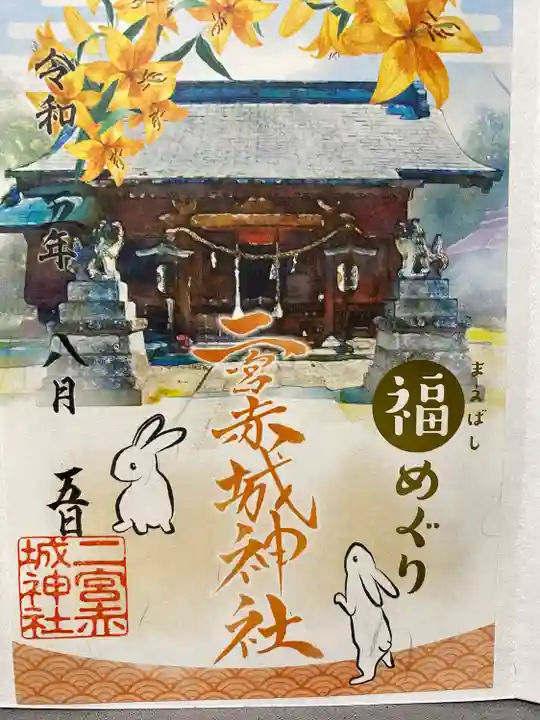 まえばし
福めぐり
二宮赤城神社
令和
年
八月
五日
二宮赤
城神社